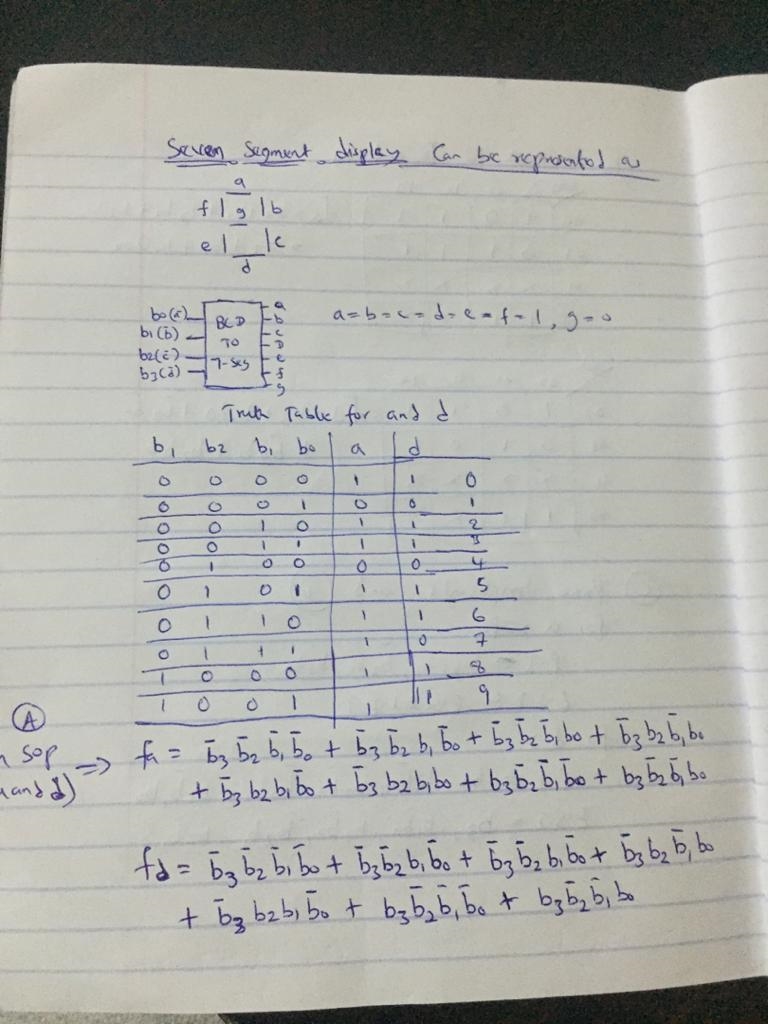 Seven Segment display Can be represented as
a
f | g | b
e | | c
d
b0(ā) BCD a
b1(b̄) TO b
b2(c̄) 7-seg c
b3(d̄) D
e
f
g
a=b=c=d=e=f=1, g=0
Truth Table for and d
b1 b2 b1 b0 a d
0 0 0 0 1 1 0
0 0 0 1 0 0 1
0 0 1 0 1 1 2
0 0 1 1 1 1 3
0 1 0 0 0 0 4
0 1 0 1 1 1 5
0 1 1 0 1 1 6
0 1 1 1 1 0 7
1 0 0 0 1 1 8
1 0 0 1 1 1 9
A
SOP
and d) ⇒ fa = b̄3 b̄2 b̄1 b̄0 + b̄3 b̄2 b1 b̄0 + b̄3 b̄2 b̄1 b0 + b̄3 b2 b̄1 b0
+ b̄3 b2 b1 b̄0 + b̄3 b2 b1 b0 + b3 b̄2 b̄1 b̄0 + b3 b̄2 b̄1 b0
fd = b̄3 b̄2 b̄1 b̄0 + b̄3 b̄2 b1 b̄0 + b̄3 b̄2 b1 b̄0 + b̄3 b2 b̄1 b0
+ b̄3 b2 b1 b̄0 + b3 b̄2 b̄1 b̄0 + b3 b̄2 b̄1 b0